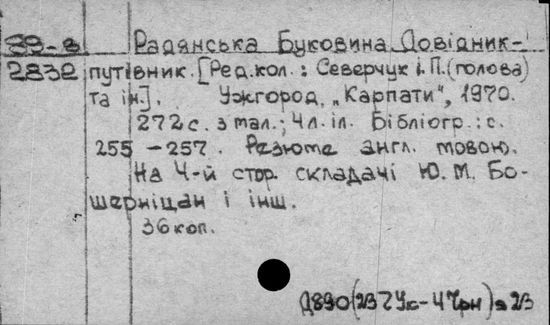 39-3 Радянська Буковина Довідник-
2832 путівник. [Ред.кол.: Северчук і.П. (голова)
та ін.]. Ужгород, „Карпати“, 1970.
272 с. з мал.; 4 л. іл. Бібліогр.: с.
255 – 257. Резюме англ. мовою.
На 4-й стор. складачі Ю. М. Бо-
шерніцан і інш.
36 коп.
Д890(2) 2 Ук-4 Чрн) я 23